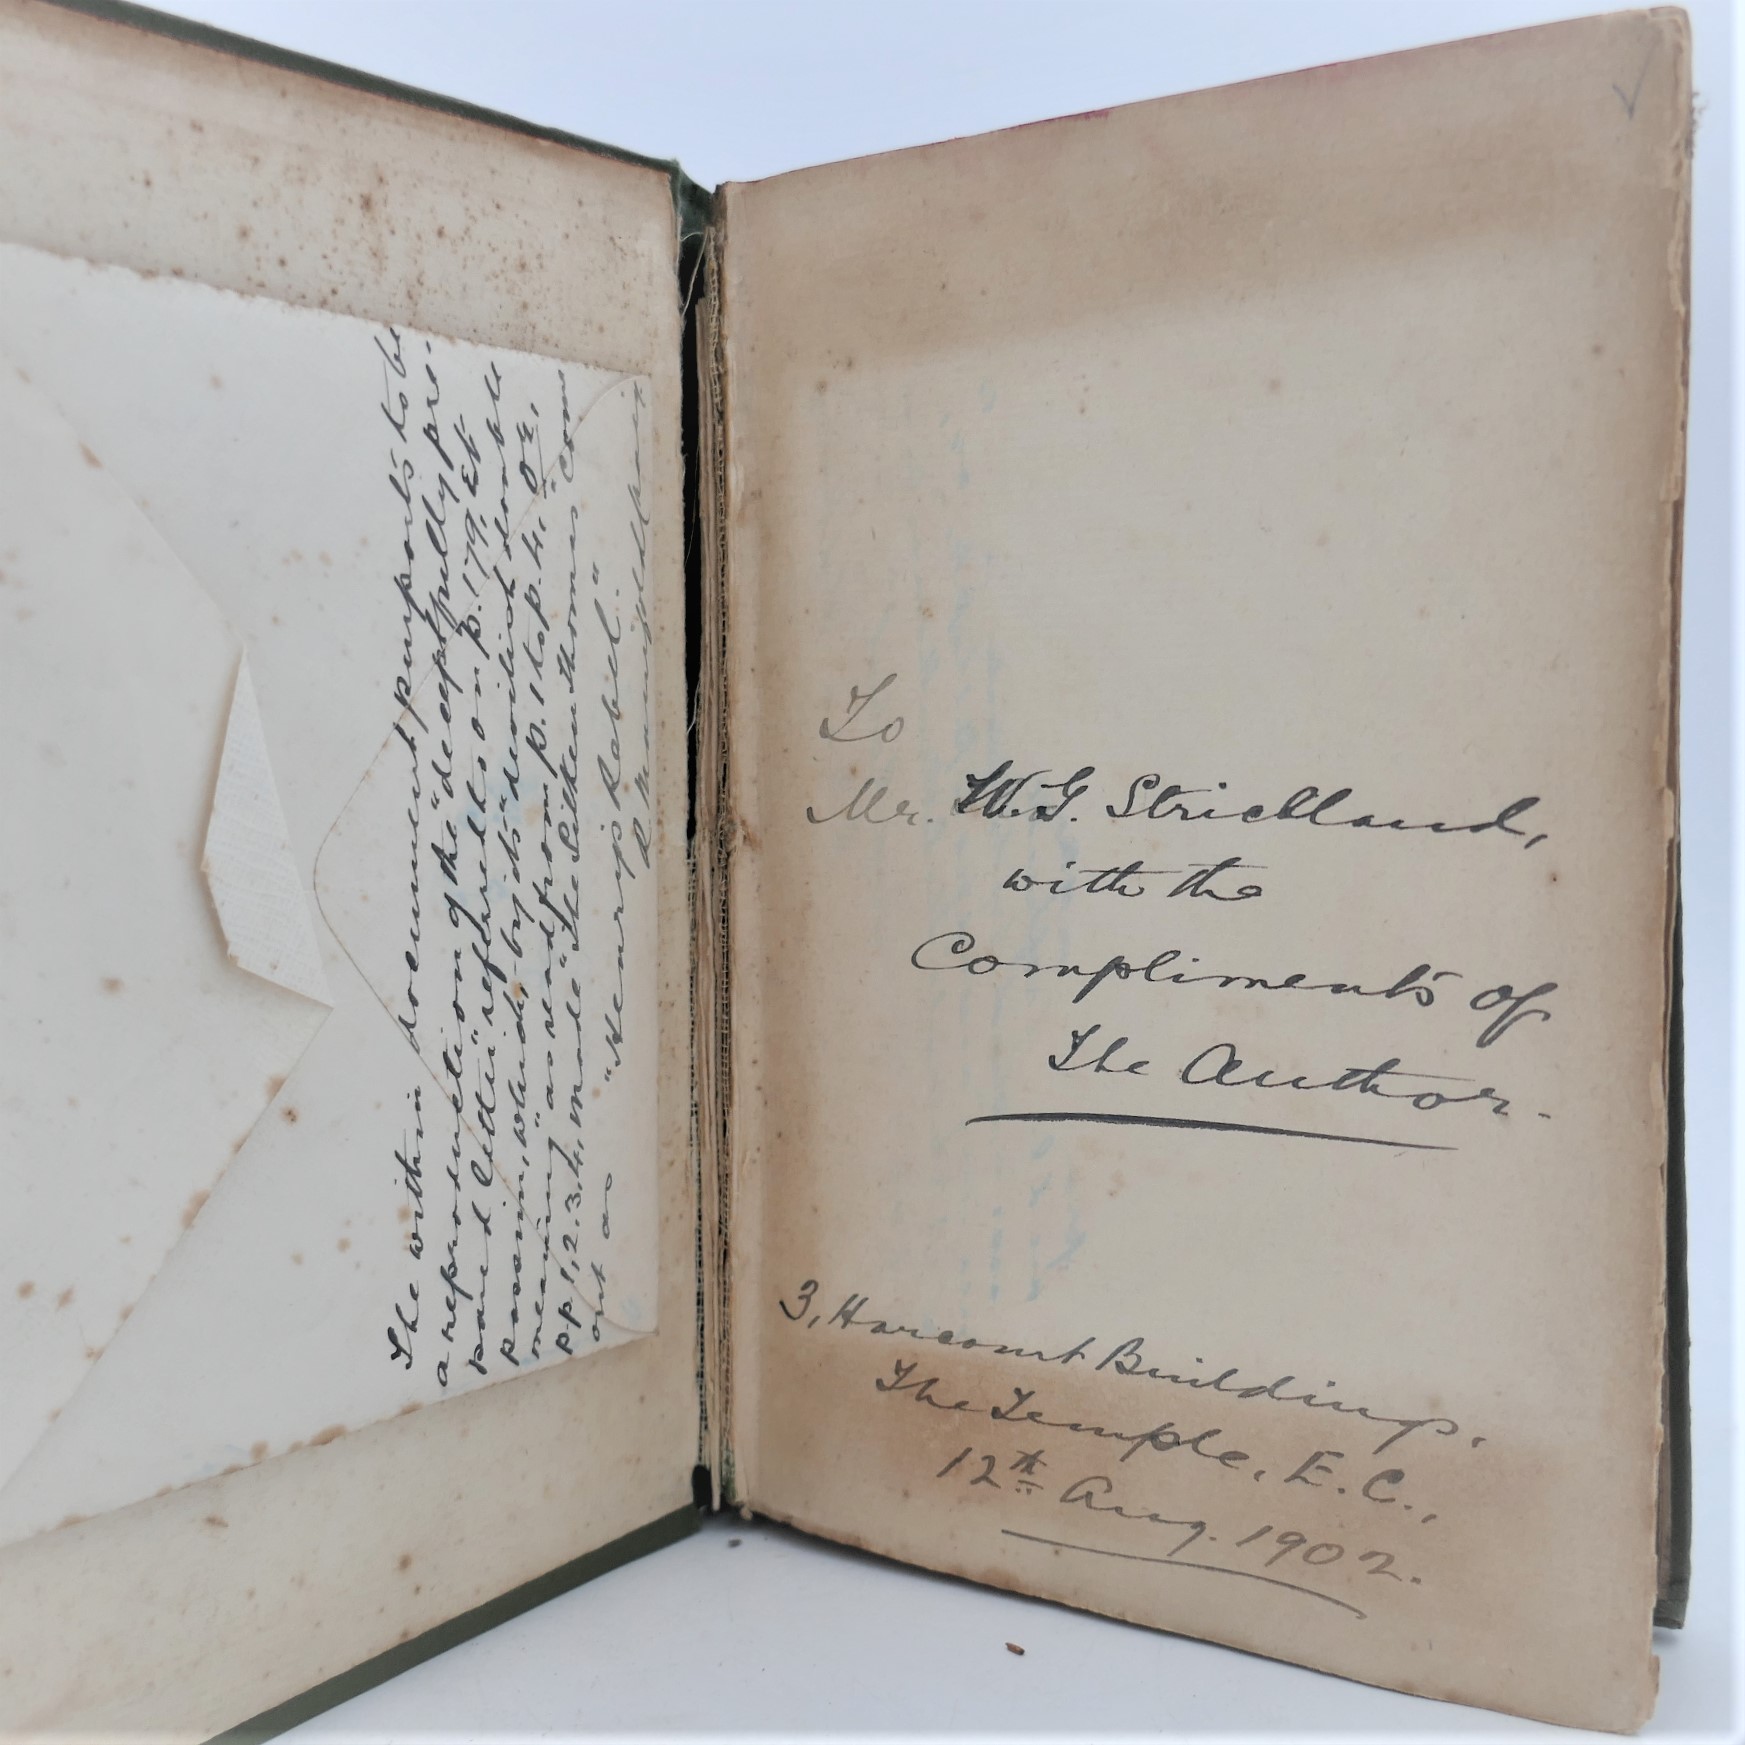 The within document purports to be
a reproduction of the "deceptfully pre-
pared Letter" referred to on p. 179, Et
passim, which, by its "devilish double
meaning," as read from p. 1 to p. 4, Or,
pp 1, 2, 3, 4, made "The Silken Thomas" come
out as "Henry's Rebel."
R. Manifold
To
Mr. W. G. Strickland,
with the
Compliments of
The Author.
3, Harcourt Buildings,
The Temple, E. C.,
12th Aug. 1902.